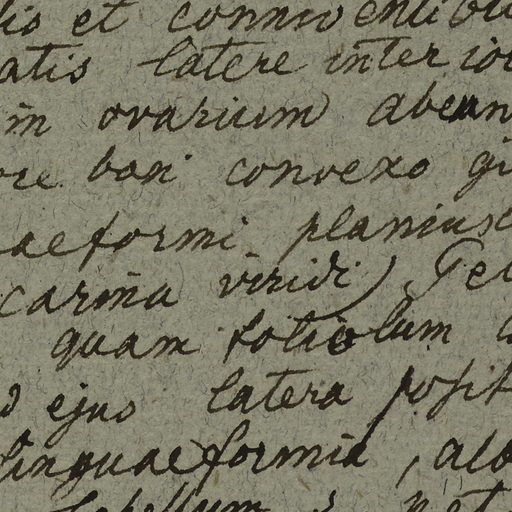 lis et conniventibu
atis latere interio
in ovarium abeun
ore basi convexo gi
aeformi planius
carina viridi, Pet
quam foliolum
ejus latera posit
linguaeformia, alb
labellum